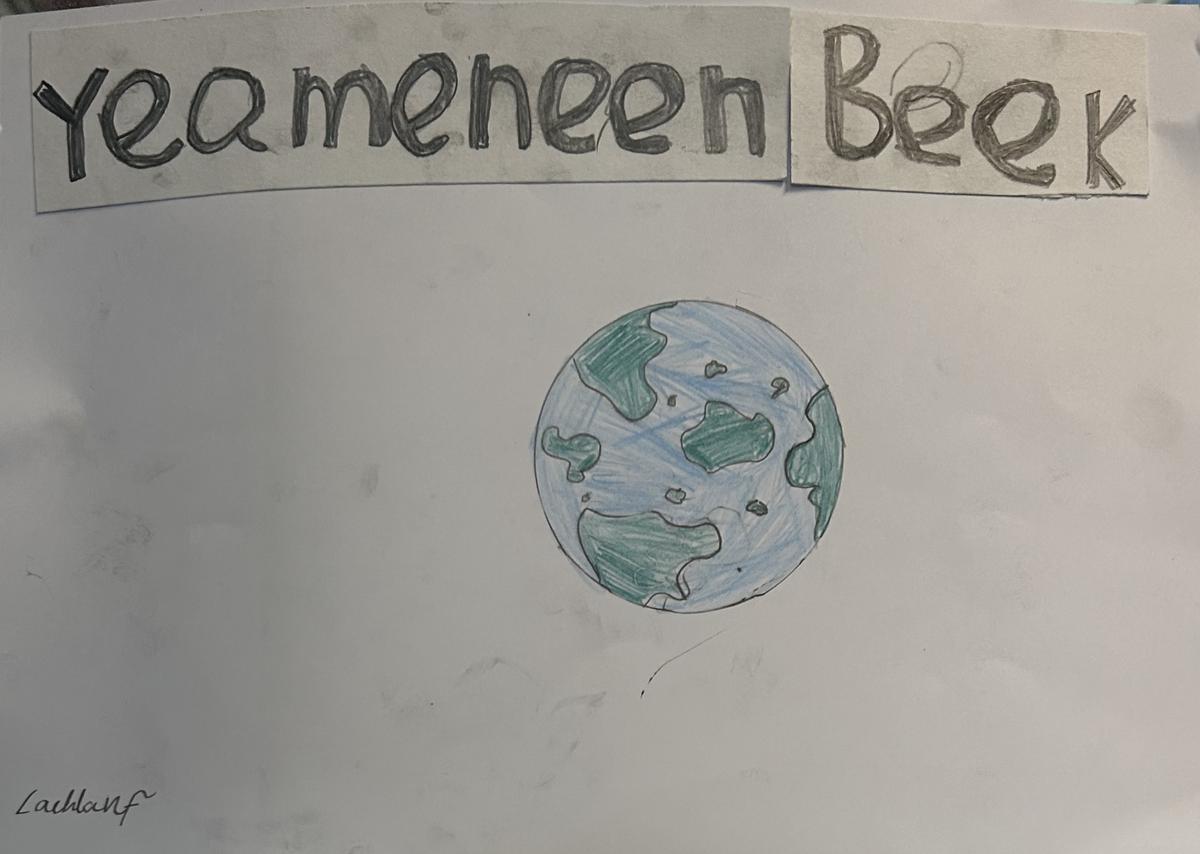 Yeameneen Beek
Lachlanf